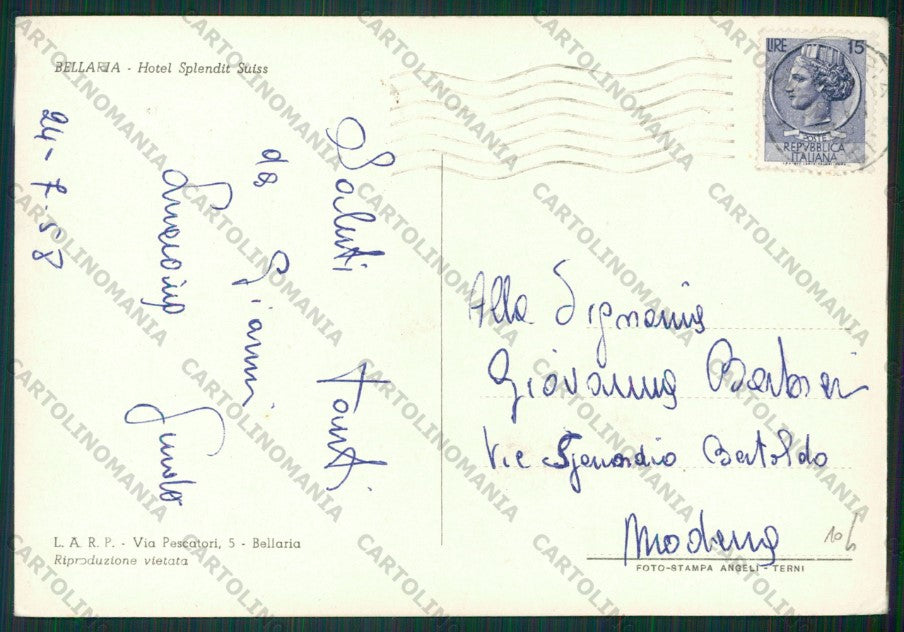 BELLARIA - Hotel Splendit Suiss
LIRE 15
POSTE
REPVBBLICA
ITALIANA
24-7-58
Saluti Tanti
da Gianni
Alla Signorina
Giovanna Barbieri
Via Bertoldo
Modena
10
L. A. R. P. - Via Pescatori, 5 - Bellaria
Riproduzione vietata
FOTO-STAMPA ANGELI - TERNI
CARTOLINOMANIA